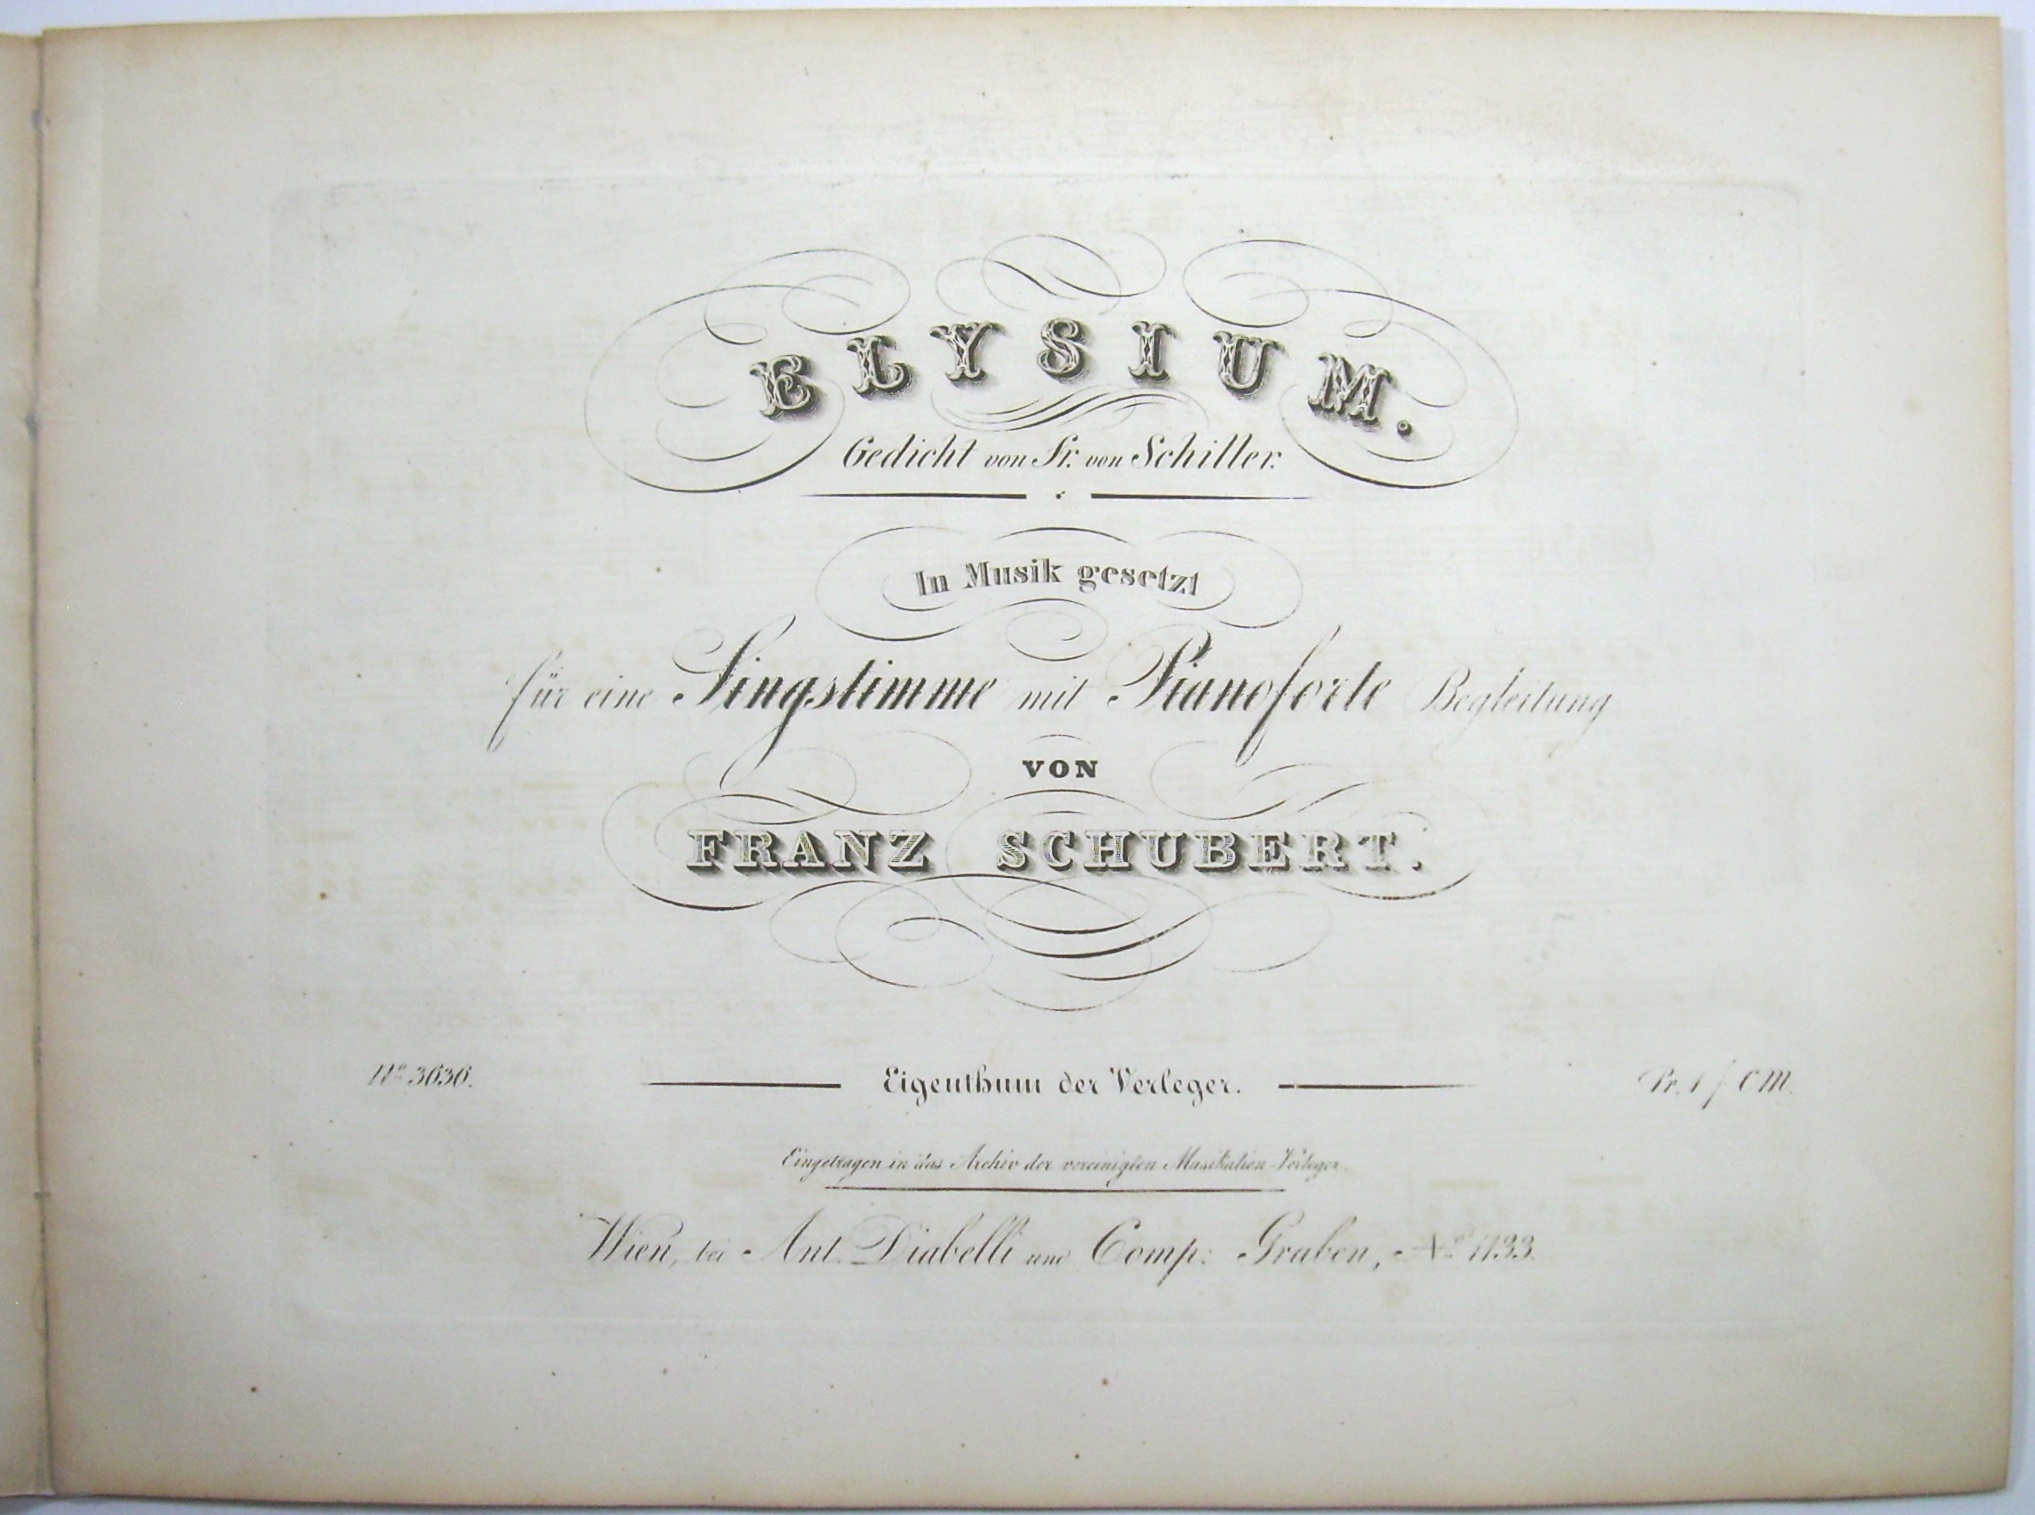 ELYSIUM.
Gedicht von Fr. von Schiller.
In Musik gesetzt
für eine Singstimme mit Pianoforte Begleitung
VON
FRANZ SCHUBERT.
No 3636. Eigenthum der Verleger. Pr. 1 f C M.
Eingetragen in das Archiv der vereinigten Musikalien-Verleger.
Wien, bei Ant. Diabelli und Comp: Graben, No 1133.